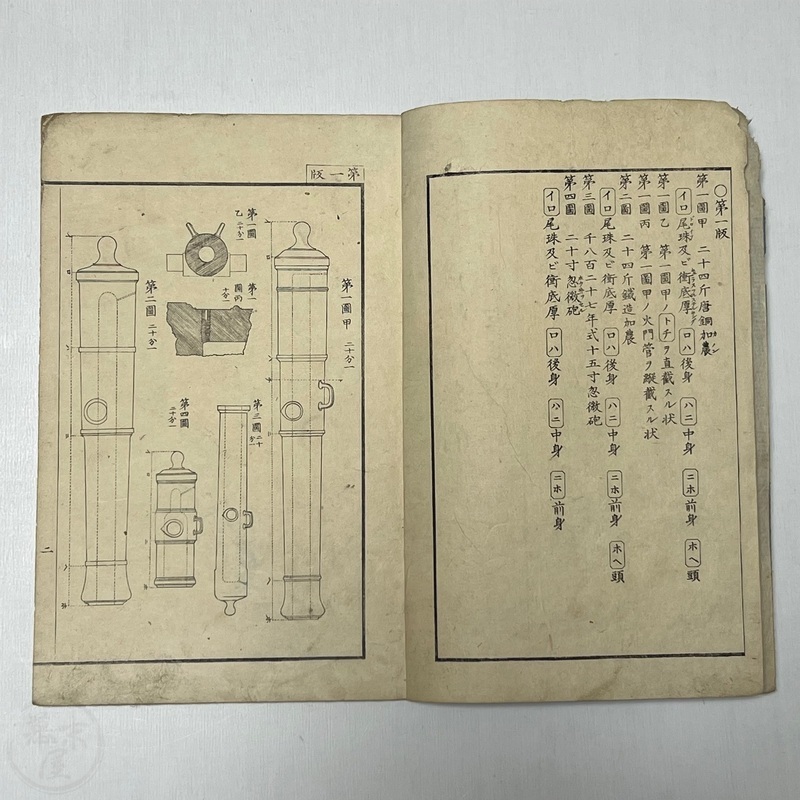 〇第一版
第一圖甲 二十四斤唐銅加農
イロ 尾珠及ビ銜底厚 ロハ 後身 ハニ 中身 ニホ 前身 ホヘ 頭
第一圖乙 第一圖甲ノトチヲ直截スル状
第一圖丙 第一圖甲ノ火門管ヲ縱截スル状
第二圖 二十四斤鐵造加農
イロ 尾珠及ビ銜底厚 ロハ 後身 ハニ 中身 ニホ 前身 ホヘ 頭
第三圖 千八百二十七年式十五寸忽微砲
第四圖 二十寸忽微砲
イロ 尾珠及ビ銜底厚 ロハ 後身 ハニ 中身 ニホ 前身
第一版
第一圖甲 二十分一
第一圖乙 二十分一
第一圖丙 十分一
第二圖 二十分一
第三圖 二十分一
第四圖 二十分一
二